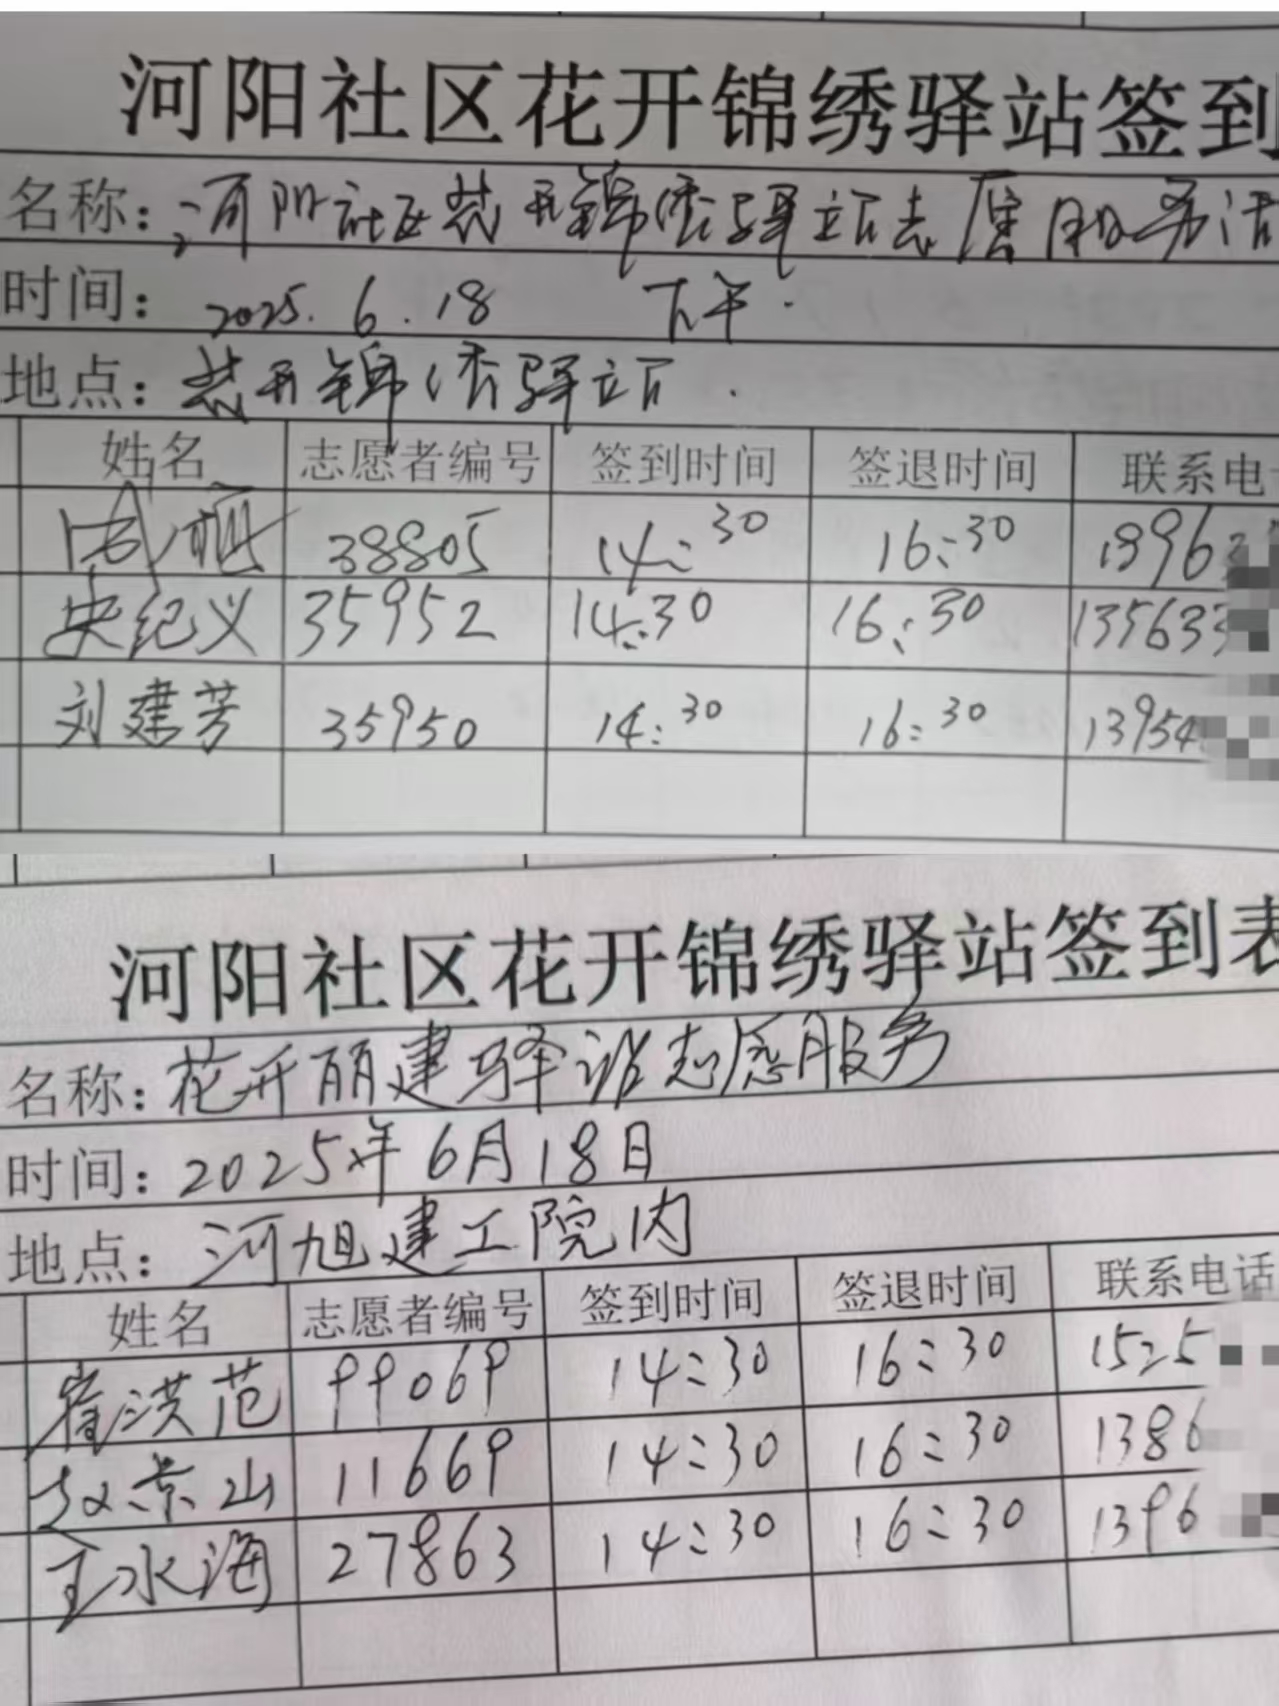 河阳社区花开锦绣驿站签到
名称：河阳社区花开锦绣驿站志愿服务活
时间：2025.6.18 下午.
地点：花开锦绣驿站.
姓名 志愿者编号 签到时间 签退时间 联系电
38805 14:30 16:30 1396
史纪义 35952 14:30 16:30 135633
刘建芳 35950 14:30 16:30 13954
河阳社区花开锦绣驿站签到表
名称：花开丽建驿站志愿服务
时间：2025年6月18日
地点：河旭建工院内
姓名 志愿者编号 签到时间 签退时间 联系电话
崔洪范 99069 14:30 16:30 1525
赵京山 11669 14:30 16:30 1386
王水海 27863 14:30 16:30 1396